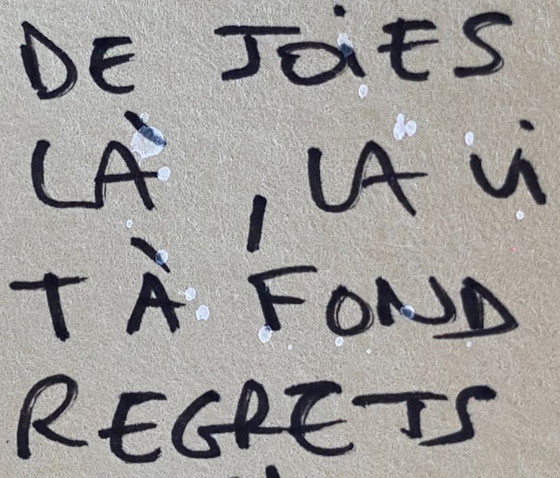 DE JOiES
LÀ, LA Vi
T À FOND
REGRETS